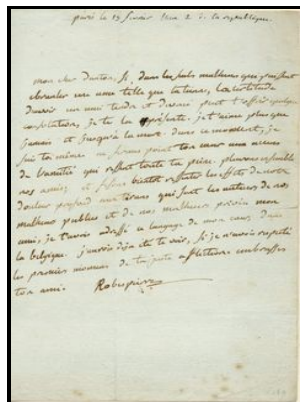 paris le 15 fevrier l'an 2 de la republique.
mon cher Danton, Si, dans les seuls malheurs qui puissent
ebranler une ame telle que la tienne, la certitude
d'avoir un ami tendre et devoué peut t'offrir quelque
consolation, je te la présente. je t'aime plus que
jamais et jusqu'à la mort. dans ce moment, je
suis toi même. ne ferme point ton cœur aux accens
de l'amitié qui ressent toute ta peine. pleurons ensemble
nos amis, et bientot les effets de notre
douleur aux tirans qui sont les auteurs de nos
malheurs publics et de nos malheurs privés. mon
ami, je t'avois adressé ce langage de mon cœur dans
la belgique. j'aurois déja été te voir, si je n'avois respecté
les premiers momens de ta juste affliction. embrasses
ton ami. Robespierre